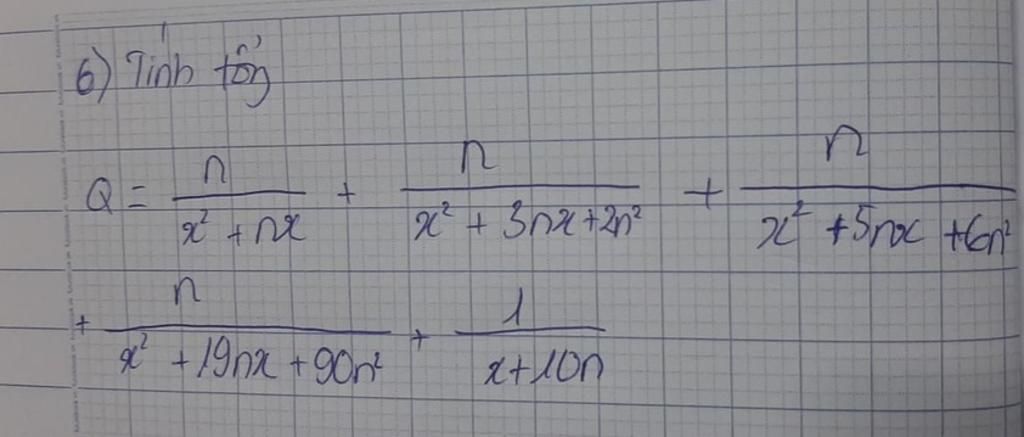 6) Tính tổng
Q = \frac{n}{x² + nx} + \frac{n}{x² + 3nx + 2n²} + \frac{n}{x² + 5nx + 6n²}
+ \frac{n}{x² + 19nx + 90n²} + \frac{1}{x + 10n}